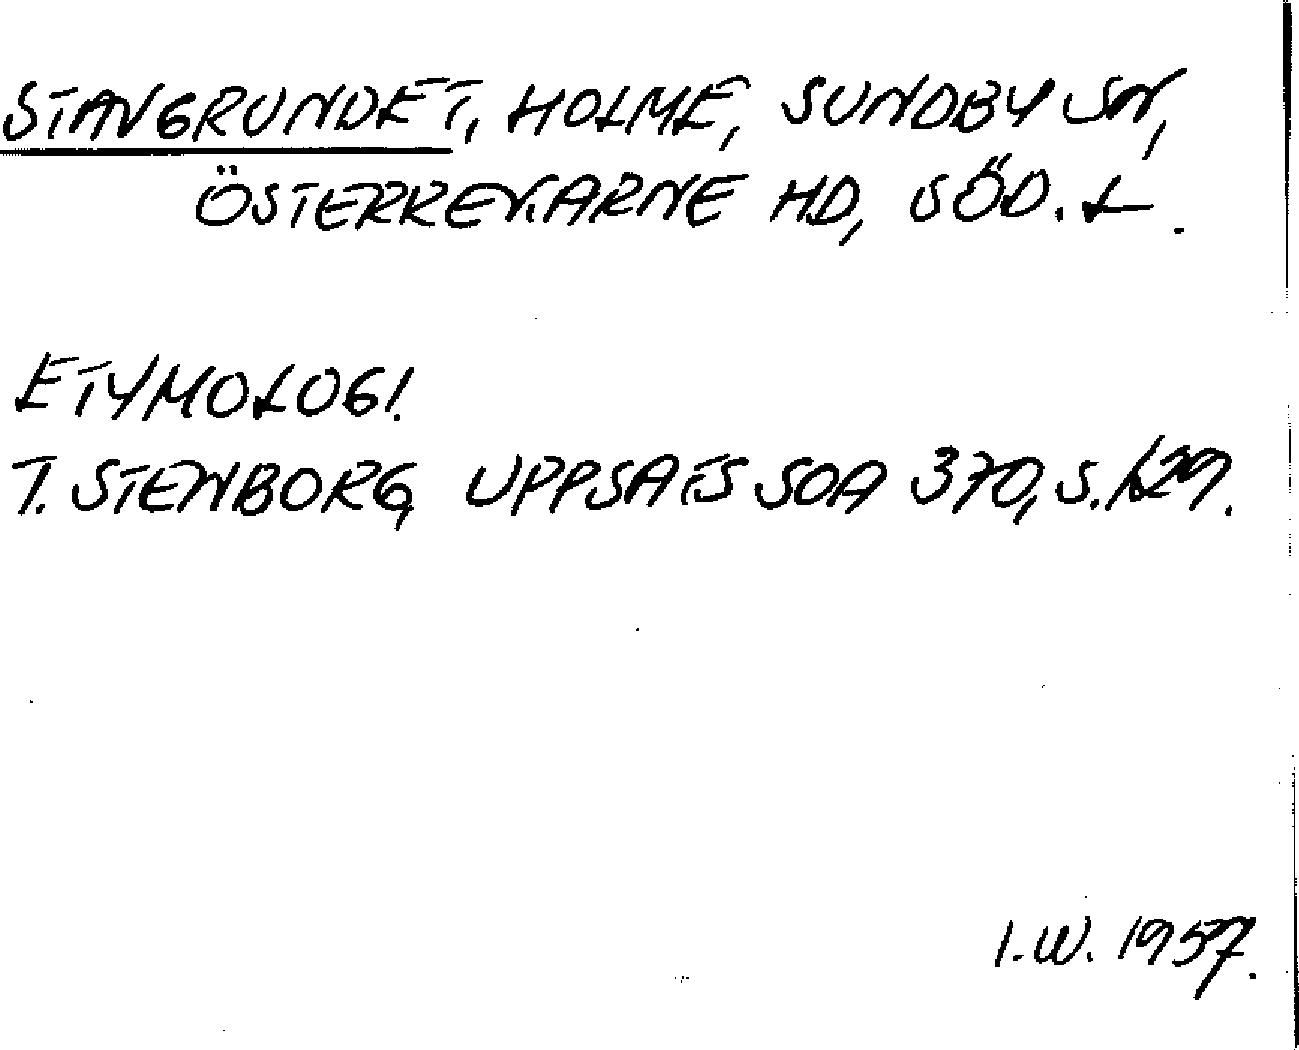 STAVGRUNDET, HOLME, SUNDBY SN,
ÖSTERREKARNE HD, SÖD. L.
ETYMOLOGI.
T. STENBORG, UPPSATS SOA 370, S. 129.
I.W. 1957.